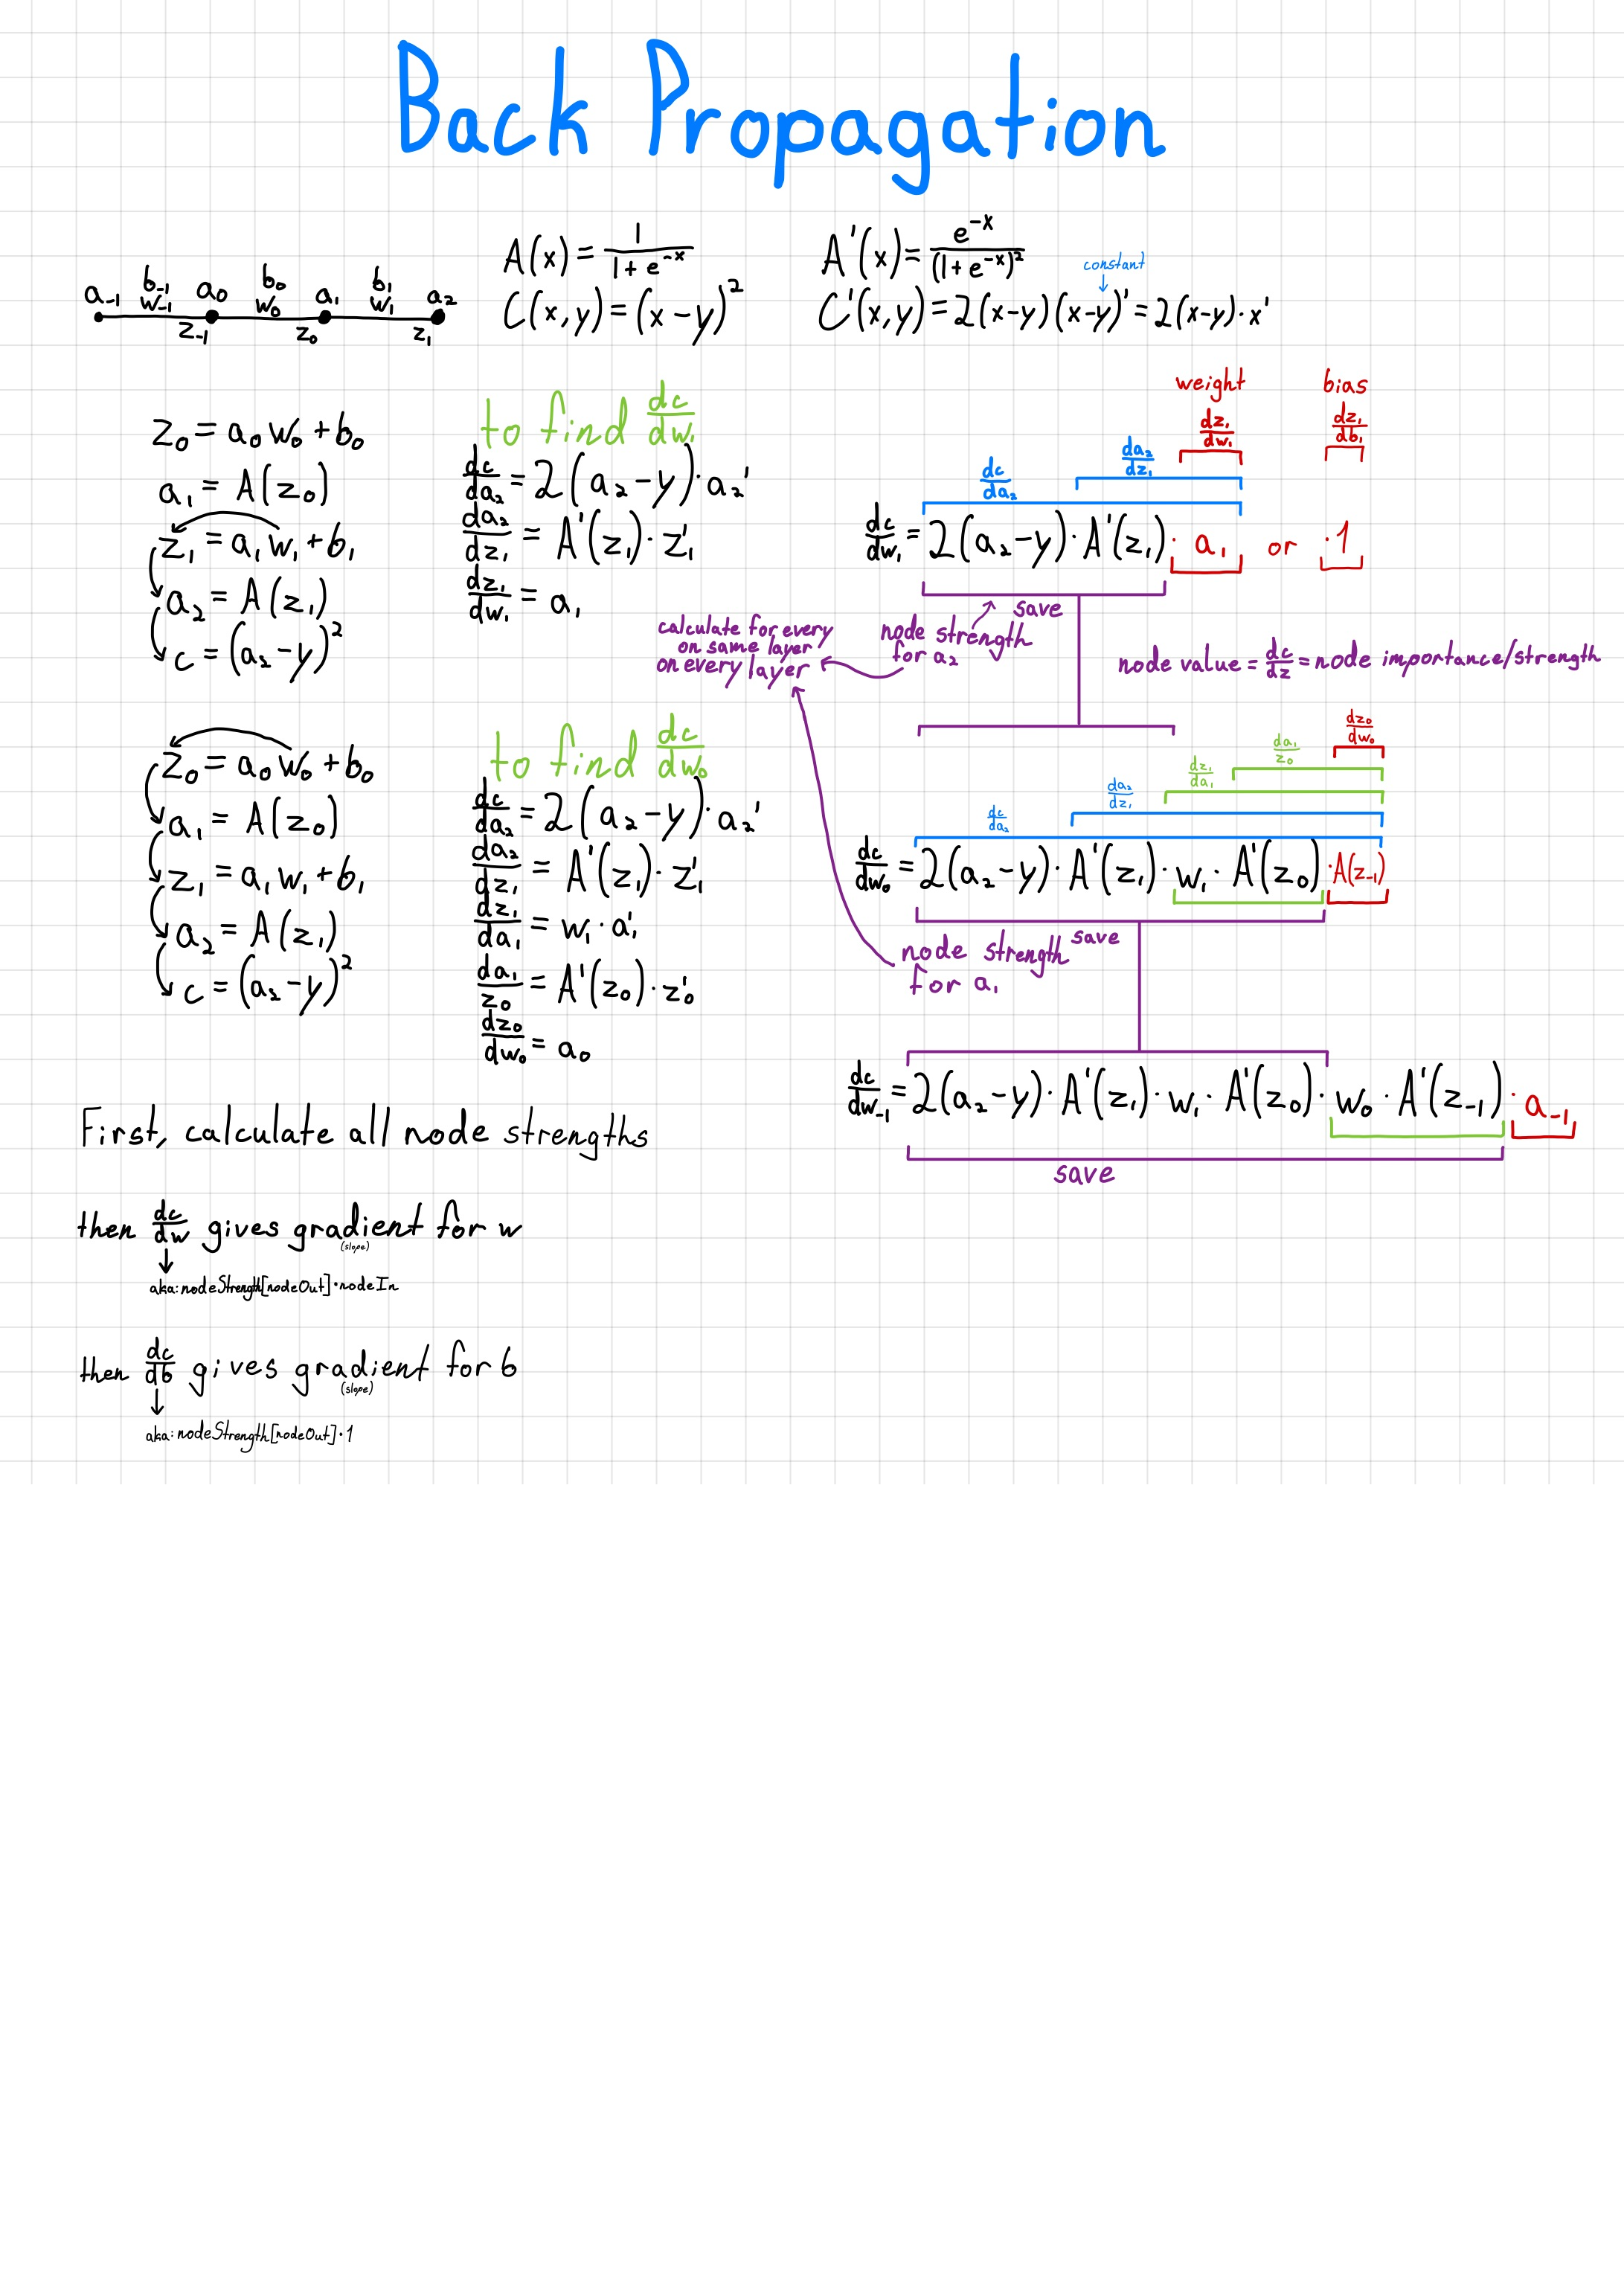 Back Propagation
a₋₁ b₋₁ w₋₁ a₀ b₀ w₀ a₁ b₁ w₁ a₂
z₋₁ z₀ z₁
A(x) = 1/(1 + e^-x)
C(x,y) = (x-y)²
A'(x) = e^-x/(1+e^-x)²
constant
C'(x,y) = 2(x-y)(x-y)' = 2(x-y)·x'
z₀ = a₀w₀ + b₀
a₁ = A(z₀)
z₁ = a₁w₁ + b₁
a₂ = A(z₁)
c = (a₂-y)²
to find dc/dw₁
dc/da₂ = 2(a₂-y)·a₂'
da₂/dz₁ = A'(z₁)·z₁'
dz₁/dw₁ = a₁
weight
bias
dz₁/dw₁
dz₁/db₁
da₂/dz₁
dc/da₂
dc/dw₁ = 2(a₂-y)·A'(z₁)·a₁ or ·1
save
node strength
for a₂
calculate for every
on same layer
on every layer
node value = dc/dz = node importance/strength
z₀ = a₀w₀ + b₀
a₁ = A(z₀)
z₁ = a₁w₁ + b₁
a₂ = A(z₁)
c = (a₂-y)²
to find dc/dw₀
dc/da₂ = 2(a₂-y)·a₂'
da₂/dz₁ = A'(z₁)·z₁'
dz₁/da₁ = w₁·a₁'
da₁/z₀ = A'(z₀)·z₀'
dz₀/dw₀ = a₀
dz₀/dw₀
da₁/z₀
dz₁/da₁
da₂/dz₁
dc/da₂
dc/dw₀ = 2(a₂-y)·A'(z₁)·w₁·A'(z₀)·A(z₋₁)
save
node strength
for a₁
dc/dw₋₁ = 2(a₂-y)·A'(z₁)·w₁·A'(z₀)·w₀·A'(z₋₁)·a₋₁
save
First, calculate all node strengths
then dc/dw gives gradient for w
(slope)
aka: nodeStrength[nodeOut]·nodeIn
then dc/db gives gradient for b
(slope)
aka: nodeStrength[nodeOut]·1